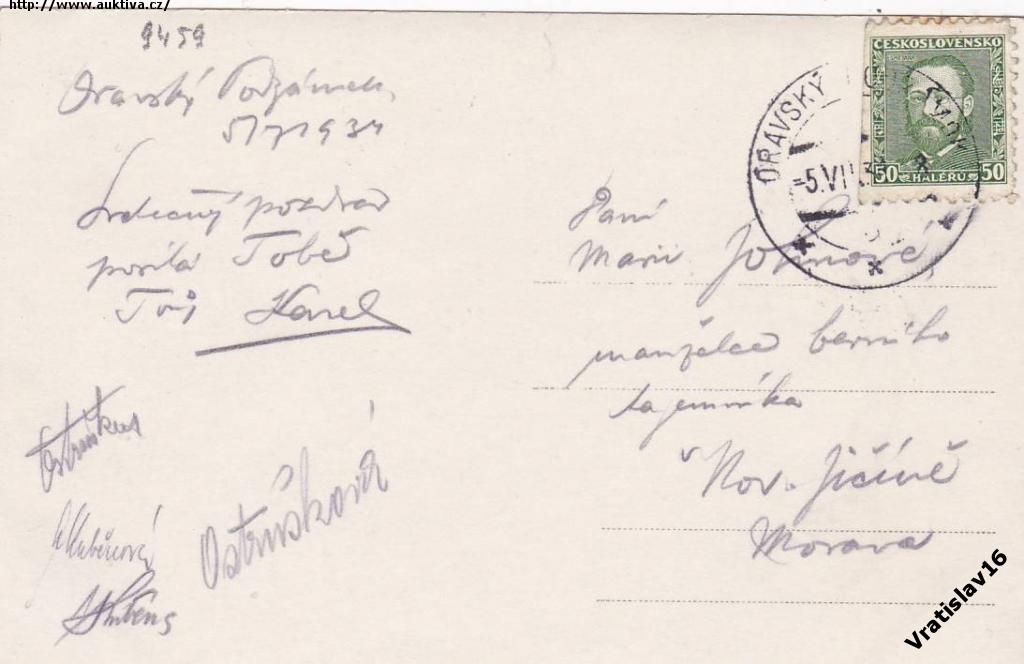 http://www.auktiva.cz/
9459
Oravský Podzámek
5/7 1934
Srdečný pozdrav
posílá Tobě
Tvůj Karel
Ostrůšková
ČESKOSLOVENSKO
50 HALÉŘŮ 50
ORAVSKÝ
-5.VII.34
Paní
Marii Johnové,
manželce berního
tajemníka
v Nov. Jičíně
Morava
Vratislav16